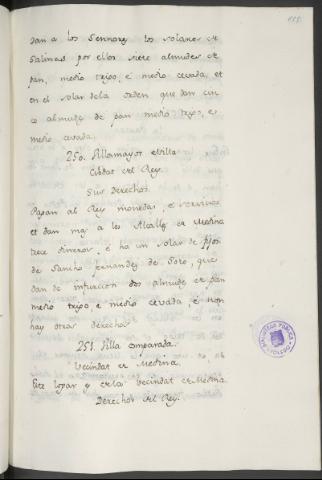 dan a los Sennores los solares de
Salinas por ellos siete almudes de
pan, medio trigo, é medio cevada, et
en el solar dela orden que dan cin
co almudes de pan medio trigo, e
medio cevada.
250. Villamayor
Cibdat del Rey.
Sus derechos.
Pagan al Rey monedas é servicios
et dan mas a los Alcalles de Medina
trece dineros, é ha un solar de fijos
de Sancho fernandez de Soto, que
dan de infurcion dos almudes de pan
medio trigo, e medio cevada, é non
hay otros derechos
251. Villa comparada.
Vecindat de Medina.
Este logar es dela vecindat de Medina
Derechos del Rey.
BIBLIOTECA PUBLICA
TOLEDO